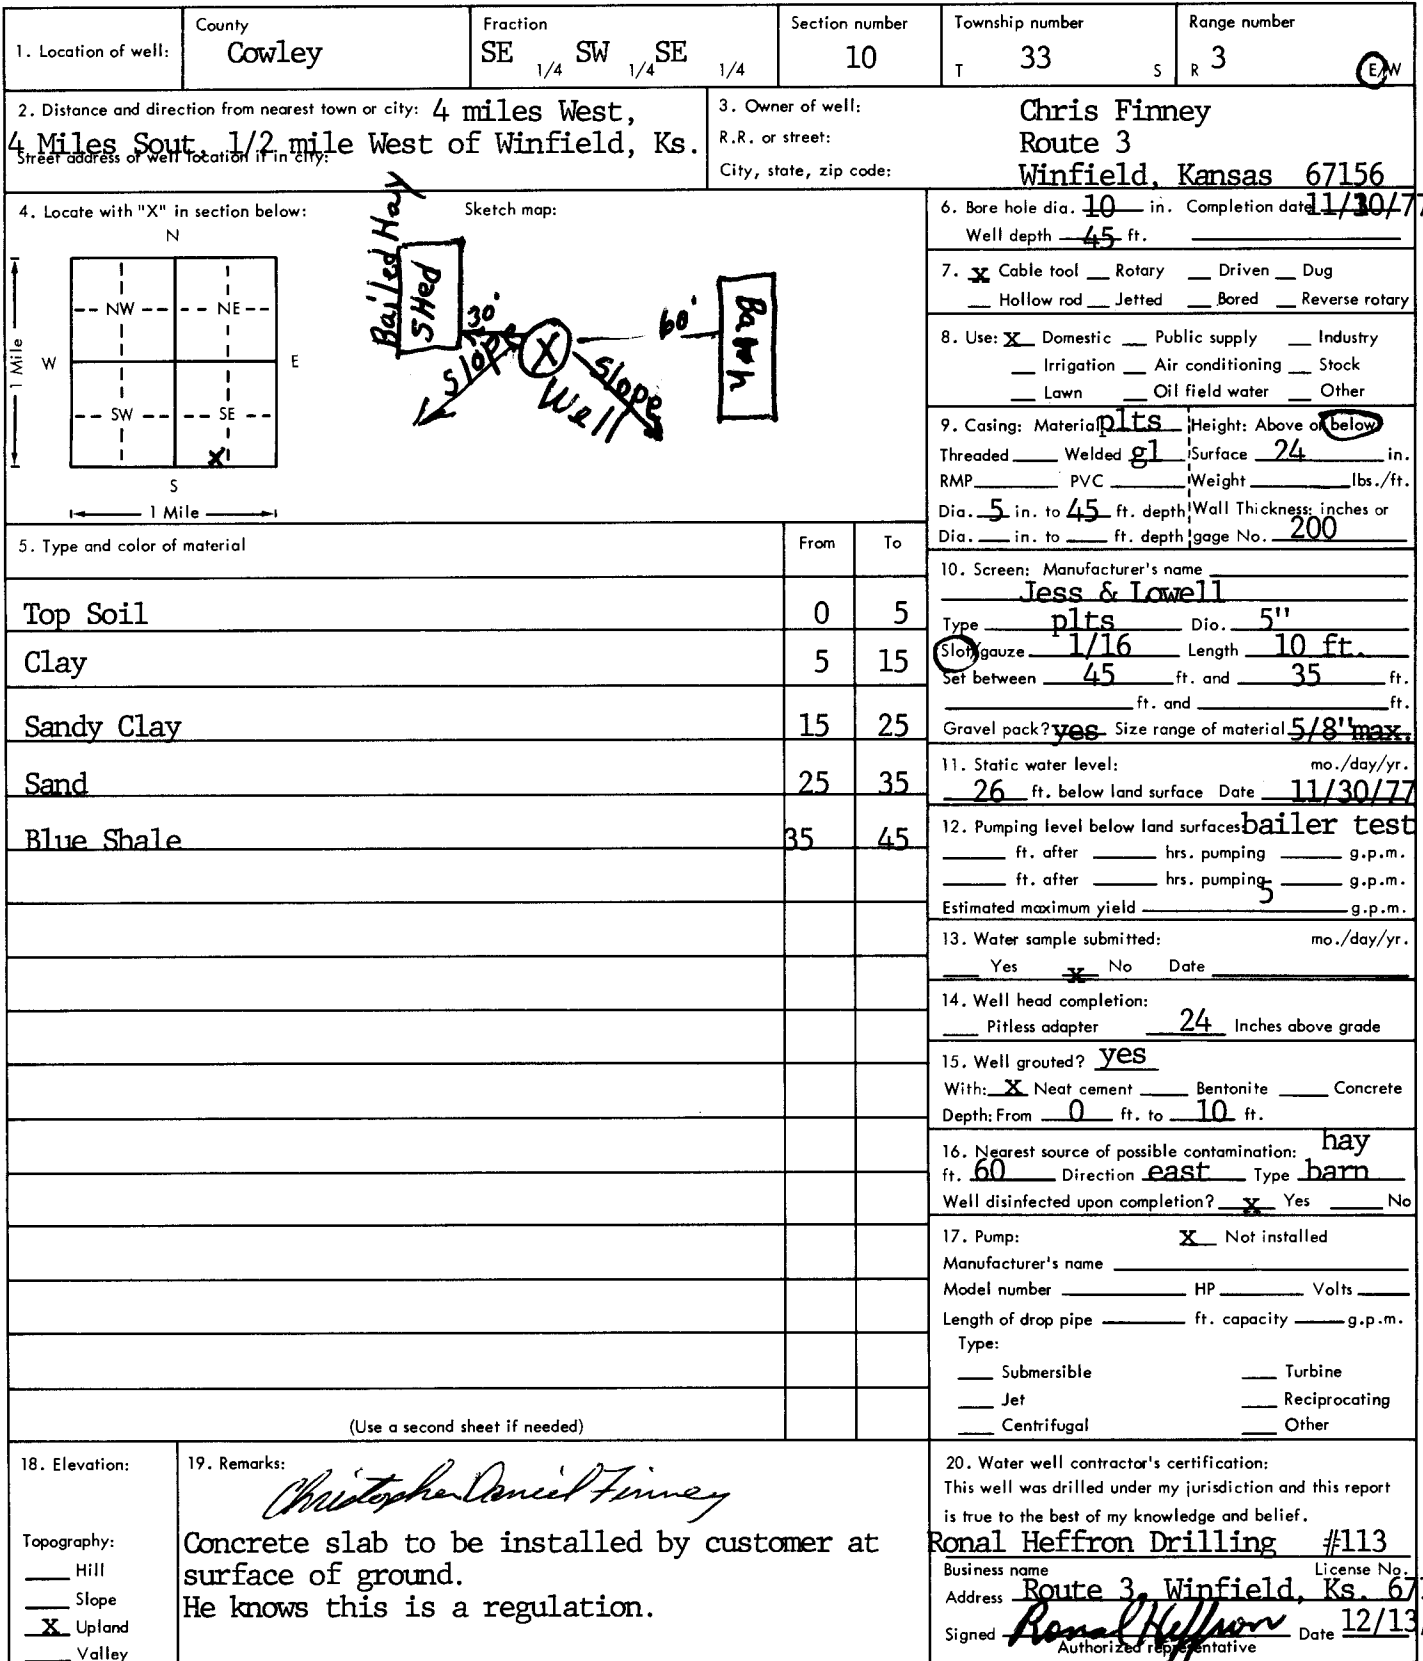 1. Location of well: County Cowley Fraction SE 1/4 SW 1/4 SE 1/4 Section number 10 Township number T 33 S Range number R 3 E/W
2. Distance and direction from nearest town or city: 4 miles West,
4 Miles Sout, 1/2 mile West of Winfield, Ks.
Street address of well location if in city:
3. Owner of well: Chris Finney
R.R. or street: Route 3
City, state, zip code: Winfield, Kansas 67156
4. Locate with "X" in section below:
N
NW NE
W E
SW SE
X
S
1 Mile
1 Mile
Sketch map:
Bailed Hay
SHed
30'
Slope
X
Well
Slope
60'
Barn
5. Type and color of material From To
Top Soil 0 5
Clay 5 15
Sandy Clay 15 25
Sand 25 35
Blue Shale 35 45
(Use a second sheet if needed)
6. Bore hole dia. 10 in. Completion date 11/30/77
Well depth 45 ft.
7. X Cable tool Rotary Driven Dug
Hollow rod Jetted Bored Reverse rotary
8. Use: X Domestic Public supply Industry
Irrigation Air conditioning Stock
Lawn Oil field water Other
9. Casing: Material plts Height: Above or below
Threaded Welded gl Surface 24 in.
RMP PVC Weight lbs./ft.
Dia. 5 in. to 45 ft. depth Wall Thickness: inches or
Dia. in. to ft. depth gage No. 200
10. Screen: Manufacturer's name
Jess & Lowell
Type plts Dio. 5"
Slot/gauze 1/16 Length 10 ft.
Set between 45 ft. and 35 ft.
ft. and ft.
Gravel pack? yes Size range of material 5/8"max.
11. Static water level: mo./day/yr.
26 ft. below land surface Date 11/30/77
12. Pumping level below land surfaces: bailer test
ft. after hrs. pumping g.p.m.
ft. after hrs. pumping g.p.m.
Estimated maximum yield 5 g.p.m.
13. Water sample submitted: mo./day/yr.
Yes X No Date
14. Well head completion:
Pitless adapter 24 Inches above grade
15. Well grouted? yes
With: X Neat cement Bentonite Concrete
Depth: From 0 ft. to 10 ft.
16. Nearest source of possible contamination: hay
ft. 60 Direction east Type barn
Well disinfected upon completion? X Yes No
17. Pump: X Not installed
Manufacturer's name
Model number HP Volts
Length of drop pipe ft. capacity g.p.m.
Type:
Submersible Turbine
Jet Reciprocating
Centrifugal Other
18. Elevation:
Topography:
Hill
Slope
X Upland
Valley
19. Remarks:
Christopher Daniel Finney
Concrete slab to be installed by customer at
surface of ground.
He knows this is a regulation.
20. Water well contractor's certification:
This well was drilled under my jurisdiction and this report
is true to the best of my knowledge and belief.
Ronal Heffron Drilling #113
Business name License No.
Address Route 3, Winfield, Ks. 67
Signed Ronal Heffron Date 12/13/
Authorized representative